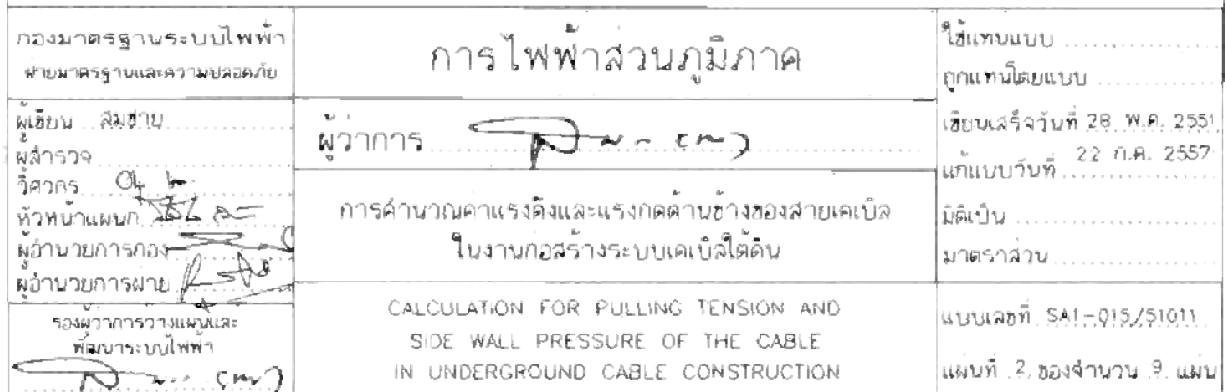 กองมาตรฐานระบบไฟฟ้า
ฝ่ายมาตรฐานและความปลอดภัย
ผู้เขียน สมชาย
ผู้สำรวจ
วิศวกร
หัวหน้าแผนก
ผู้อำนวยการกอง
ผู้อำนวยการฝ่าย
รองผู้ว่าการวางแผนและ
พัฒนาระบบไฟฟ้า
การไฟฟ้าส่วนภูมิภาค
ผู้ว่าการ
การคำนวณค่าแรงดึงและแรงกดด้านข้างของสายเคเบิล
ในงานก่อสร้างระบบเคเบิลใต้ดิน
CALCULATION FOR PULLING TENSION AND
SIDE WALL PRESSURE OF THE CABLE
IN UNDERGROUND CABLE CONSTRUCTION
ใช้แทนแบบ
ถูกแทนโดยแบบ
เขียนเสร็จวันที่ 28 พ.ค. 2551
แก้แบบวันที่ 22 ก.ค. 2557
มิติเป็น
มาตราส่วน
แบบเลขที่ SA1-015/51011
แผ่นที่ 2 ของจำนวน 9 แผ่น